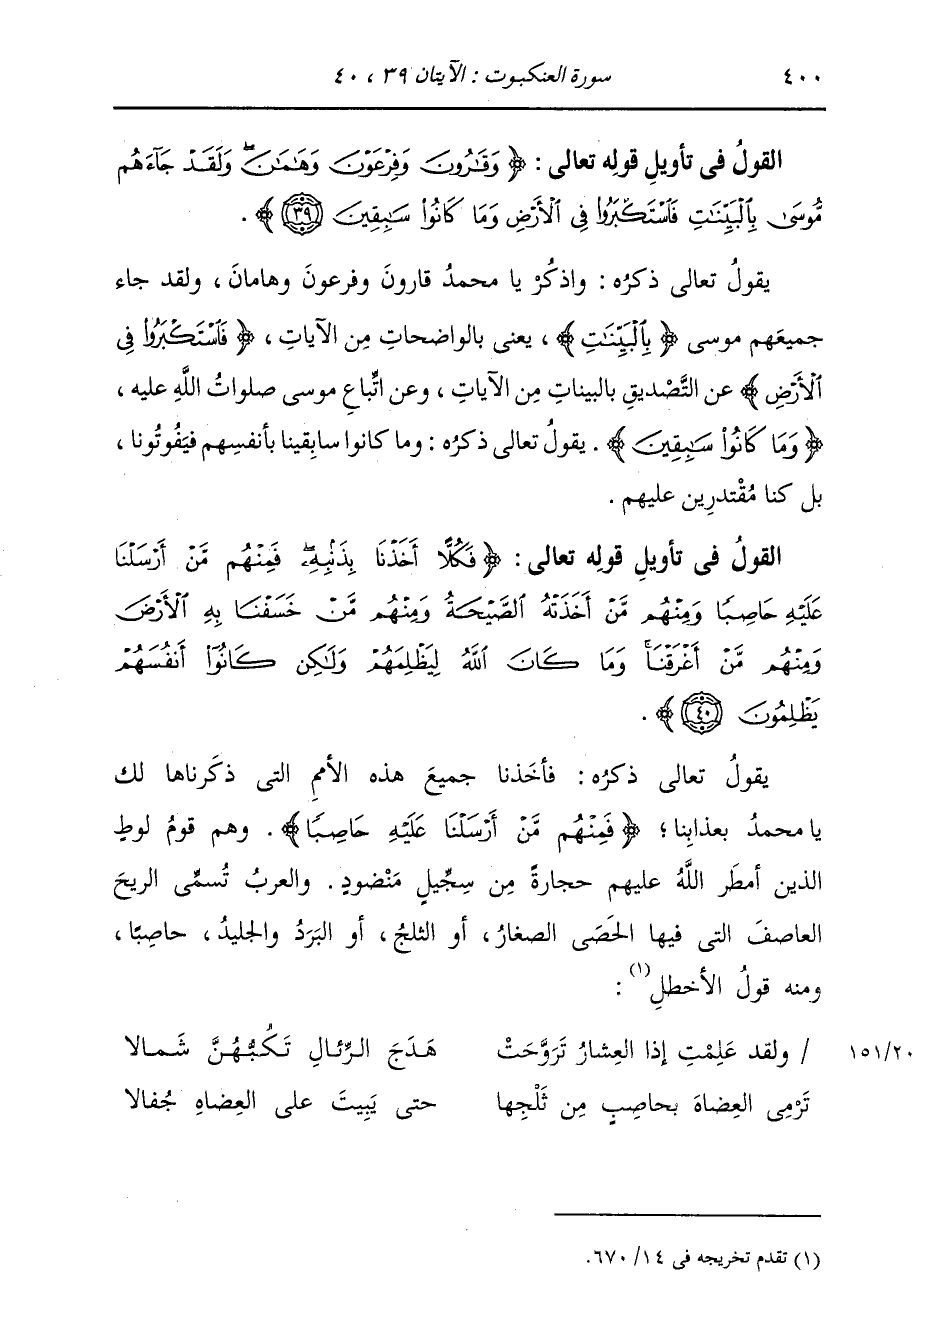 ٤٠٠ سورة العنكبوت : الآيتان ٣٩ ، ٤٠
القولُ فى تأويلِ قولِه تعالى : ﴿ وَقَٰرُونَ وَفِرْعَوْنَ وَهَٰمَٰنَۖ وَلَقَدْ جَآءَهُم
مُّوسَىٰ بِٱلْبَيِّنَٰتِ فَٱسْتَكْبَرُوا۟ فِى ٱلْأَرْضِ وَمَا كَانُوا۟ سَٰبِقِينَ ٣٩ ﴾ .
يقولُ تعالى ذكرُه : واذكُرْ يا محمدُ قارونَ وفرعونَ وهامانَ ، ولقد جاء
جميعَهم موسى ﴿ بِٱلْبَيِّنَٰتِ ﴾ ، يعنى بالواضحاتِ مِن الآياتِ ، ﴿ فَٱسْتَكْبَرُوا۟ فِى
ٱلْأَرْضِ ﴾ عن التَّصديقِ بالبيناتِ مِن الآياتِ ، وعن اتِّباعِ موسى صلواتُ اللَّهِ عليه ،
﴿ وَمَا كَانُوا۟ سَٰبِقِينَ ﴾ . يقولُ تعالى ذكرُه : وما كانوا سابِقينا بأنفسِهم فيَفُوتُونا ،
بل كنا مُقْتدرِين عليهم .
القولُ فى تأويلِ قولِه تعالى : ﴿ فَكُلًّا أَخَذْنَا بِذَنۢبِهِۦۖ فَمِنْهُم مَّنْ أَرْسَلْنَا
عَلَيْهِ حَاصِبًا وَمِنْهُم مَّنْ أَخَذَتْهُ ٱلصَّيْحَةُ وَمِنْهُم مَّنْ خَسَفْنَا بِهِ ٱلْأَرْضَ
وَمِنْهُم مَّنْ أَغْرَقْنَاۚ وَمَا كَانَ ٱللَّهُ لِيَظْلِمَهُمْ وَلَٰكِن كَانُوٓا۟ أَنفُسَهُمْ
يَظْلِمُونَ ٤٠ ﴾ .
يقولُ تعالى ذكرُه : فأخَذنا جميعَ هذه الأممِ التى ذكَرناها لك
يا محمدُ بعذابِنا ؛ ﴿ فَمِنْهُم مَّنْ أَرْسَلْنَا عَلَيْهِ حَاصِبًا ﴾ . وهم قومُ لوطٍ
الذين أمطَر اللَّهُ عليهم حجارةً مِن سِجِّيلٍ مَنْضودٍ . والعربُ تُسمِّى الريحَ
العاصفَ التى فيها الحَصَى الصغارُ ، أو الثلجُ ، أو البَرَدُ والجليدُ ، حاصِبًا ،
ومنه قولُ الأخطلِ(١) :
/ ولقد عَلِمْتِ إذا العِشارُ تَرَوَّحَتْ هَدَجَ الرِّئالِ تَكُبُّهُنَّ شَمالا ١٥١/٢٠
تَرْمِى العِضاهَ بحاصِبٍ مِن ثَلْجِها حتى يَبِيتَ على العِضاهِ جُفالا
(١) تقدم تخريجه فى ١٤/ ٦٧٠.